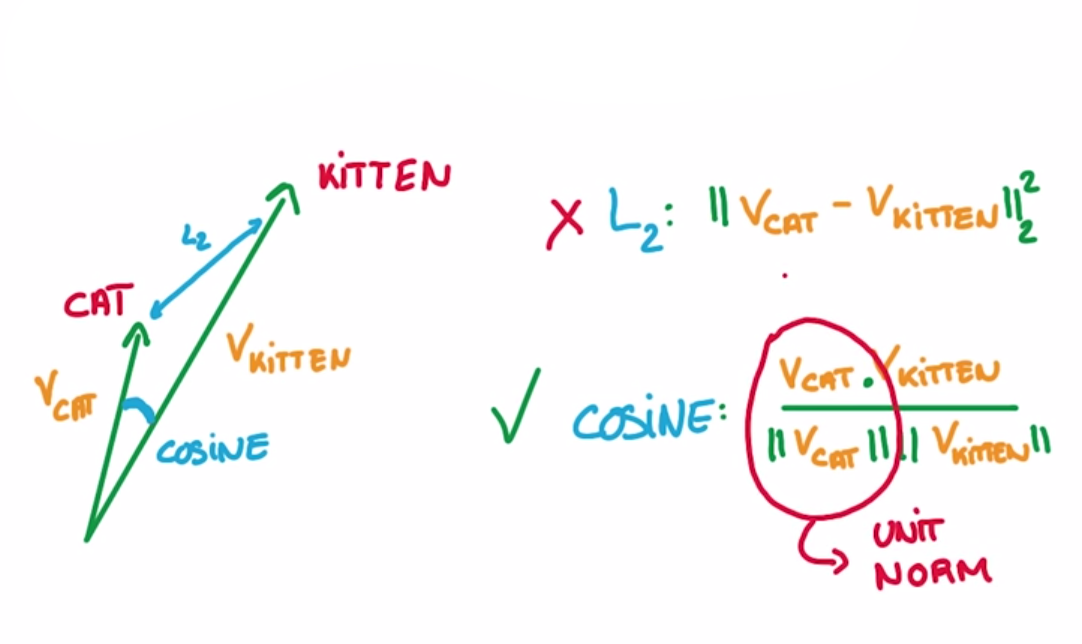 KiTTEN
L2
CAT
VKiTTEN
VCAT
COSiNE
X L2: || VCAT - VKiTTEN ||22
✓ COSiNE: VCAT . VKiTTEN
|| VCAT || || VKiTTEN ||
UNiT
NORM